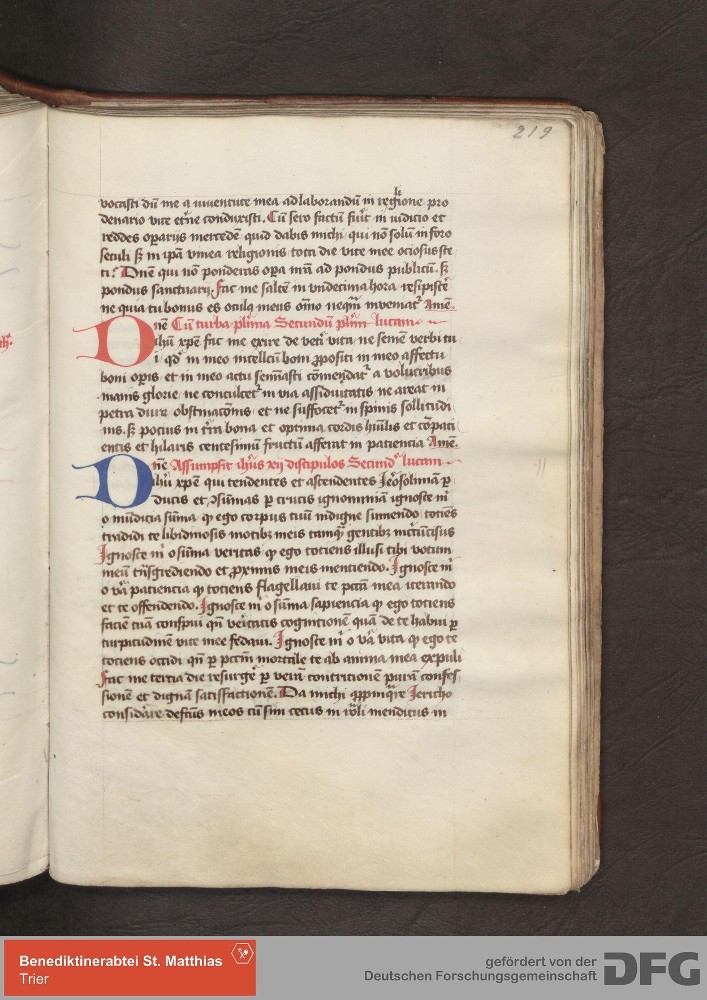 219
vocasti dū me a iuventute mea ad laborandū in regione pro
denario vite etne conduxisti. Cū sero factū fuit in iudicio et
reddes operarijs mercedē quid dabis michi qui nō solū in foro
seculi sz in ipā vinea religionis tota die vite mee ociosus ste
ti? Dnē qui nō ponderas opera nrā ad pondus publicū. sz
pondus sanctuarij. fac me saltē in vndecima hora resipiscē
ne quia tu bonus es oculus meus omō nequā inveniat Amē.
Dnē Cū turba plima Secundū lucam
ihū xpē fac me exire de veti vita ne semē verbi tu
i qd in meo intellcū boni ppositi in meo affectu
boni opis et in meo actu semīasti comēdat a volucribus
inanis glorie ne conculcet in via assiduitatis ne areat in
petra dure obstinacōnis et ne suffocet in spinis sollicitudi
nis. sz pocius in tra bona et optima cordis huīlis et
entis et hilaris centesimū fructū afferat in paciencia Amē.
Dnē Assumpsit ihūs xij discipulos Secund lucam
ihū xpē qui tendentes et ascendentes iherosolimā p
ducis et ꝯsūmas p crucis ignominiā ignosce m
o mūdicia sūma q ego corpus tuū indigne sumendo tociēs
tradidi te libidinosis motibz meis tamq gentibz
Ignosce m o sūma veritas q ego tociens illusi tibi votum
meū trnsgrediendo et pximis meis mentiendo. Ignosce m
o va paciencia q tociens flagellaui te pcctā mea iterando
et te offendendo. Ignosce m o sūma sapiencia q ego tociens
faciē tuā conspui qn veritatis cognicionē quā de te habui p
turpitudinē vite mee fedaui. Ignosce m o va vita q ego te
tociens occidi qn p pcctm mortale te ab anima mea expuli
fac me tercia die resurge p verā contricionē purā confes
sionē et dignā satisfactionē. Da michi appinqre Jericho
considare defctus meos cū sim cecus in mendicus in
Benediktinerabtei St. Matthias
Trier
gefördert von der
Deutschen Forschungsgemeinschaft
DFG